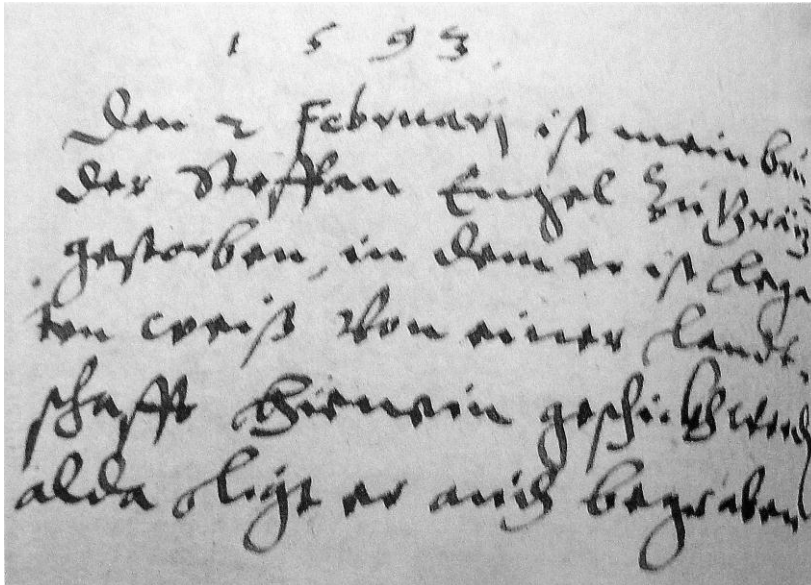 1593.
Den 2 Februarj ist mein brue
der Steffan Engel zu Präg
gestorben, in dem er ist lega
ten weiß von einer landt,
schafft hienein geschickht word
alda ligt er auch begraben